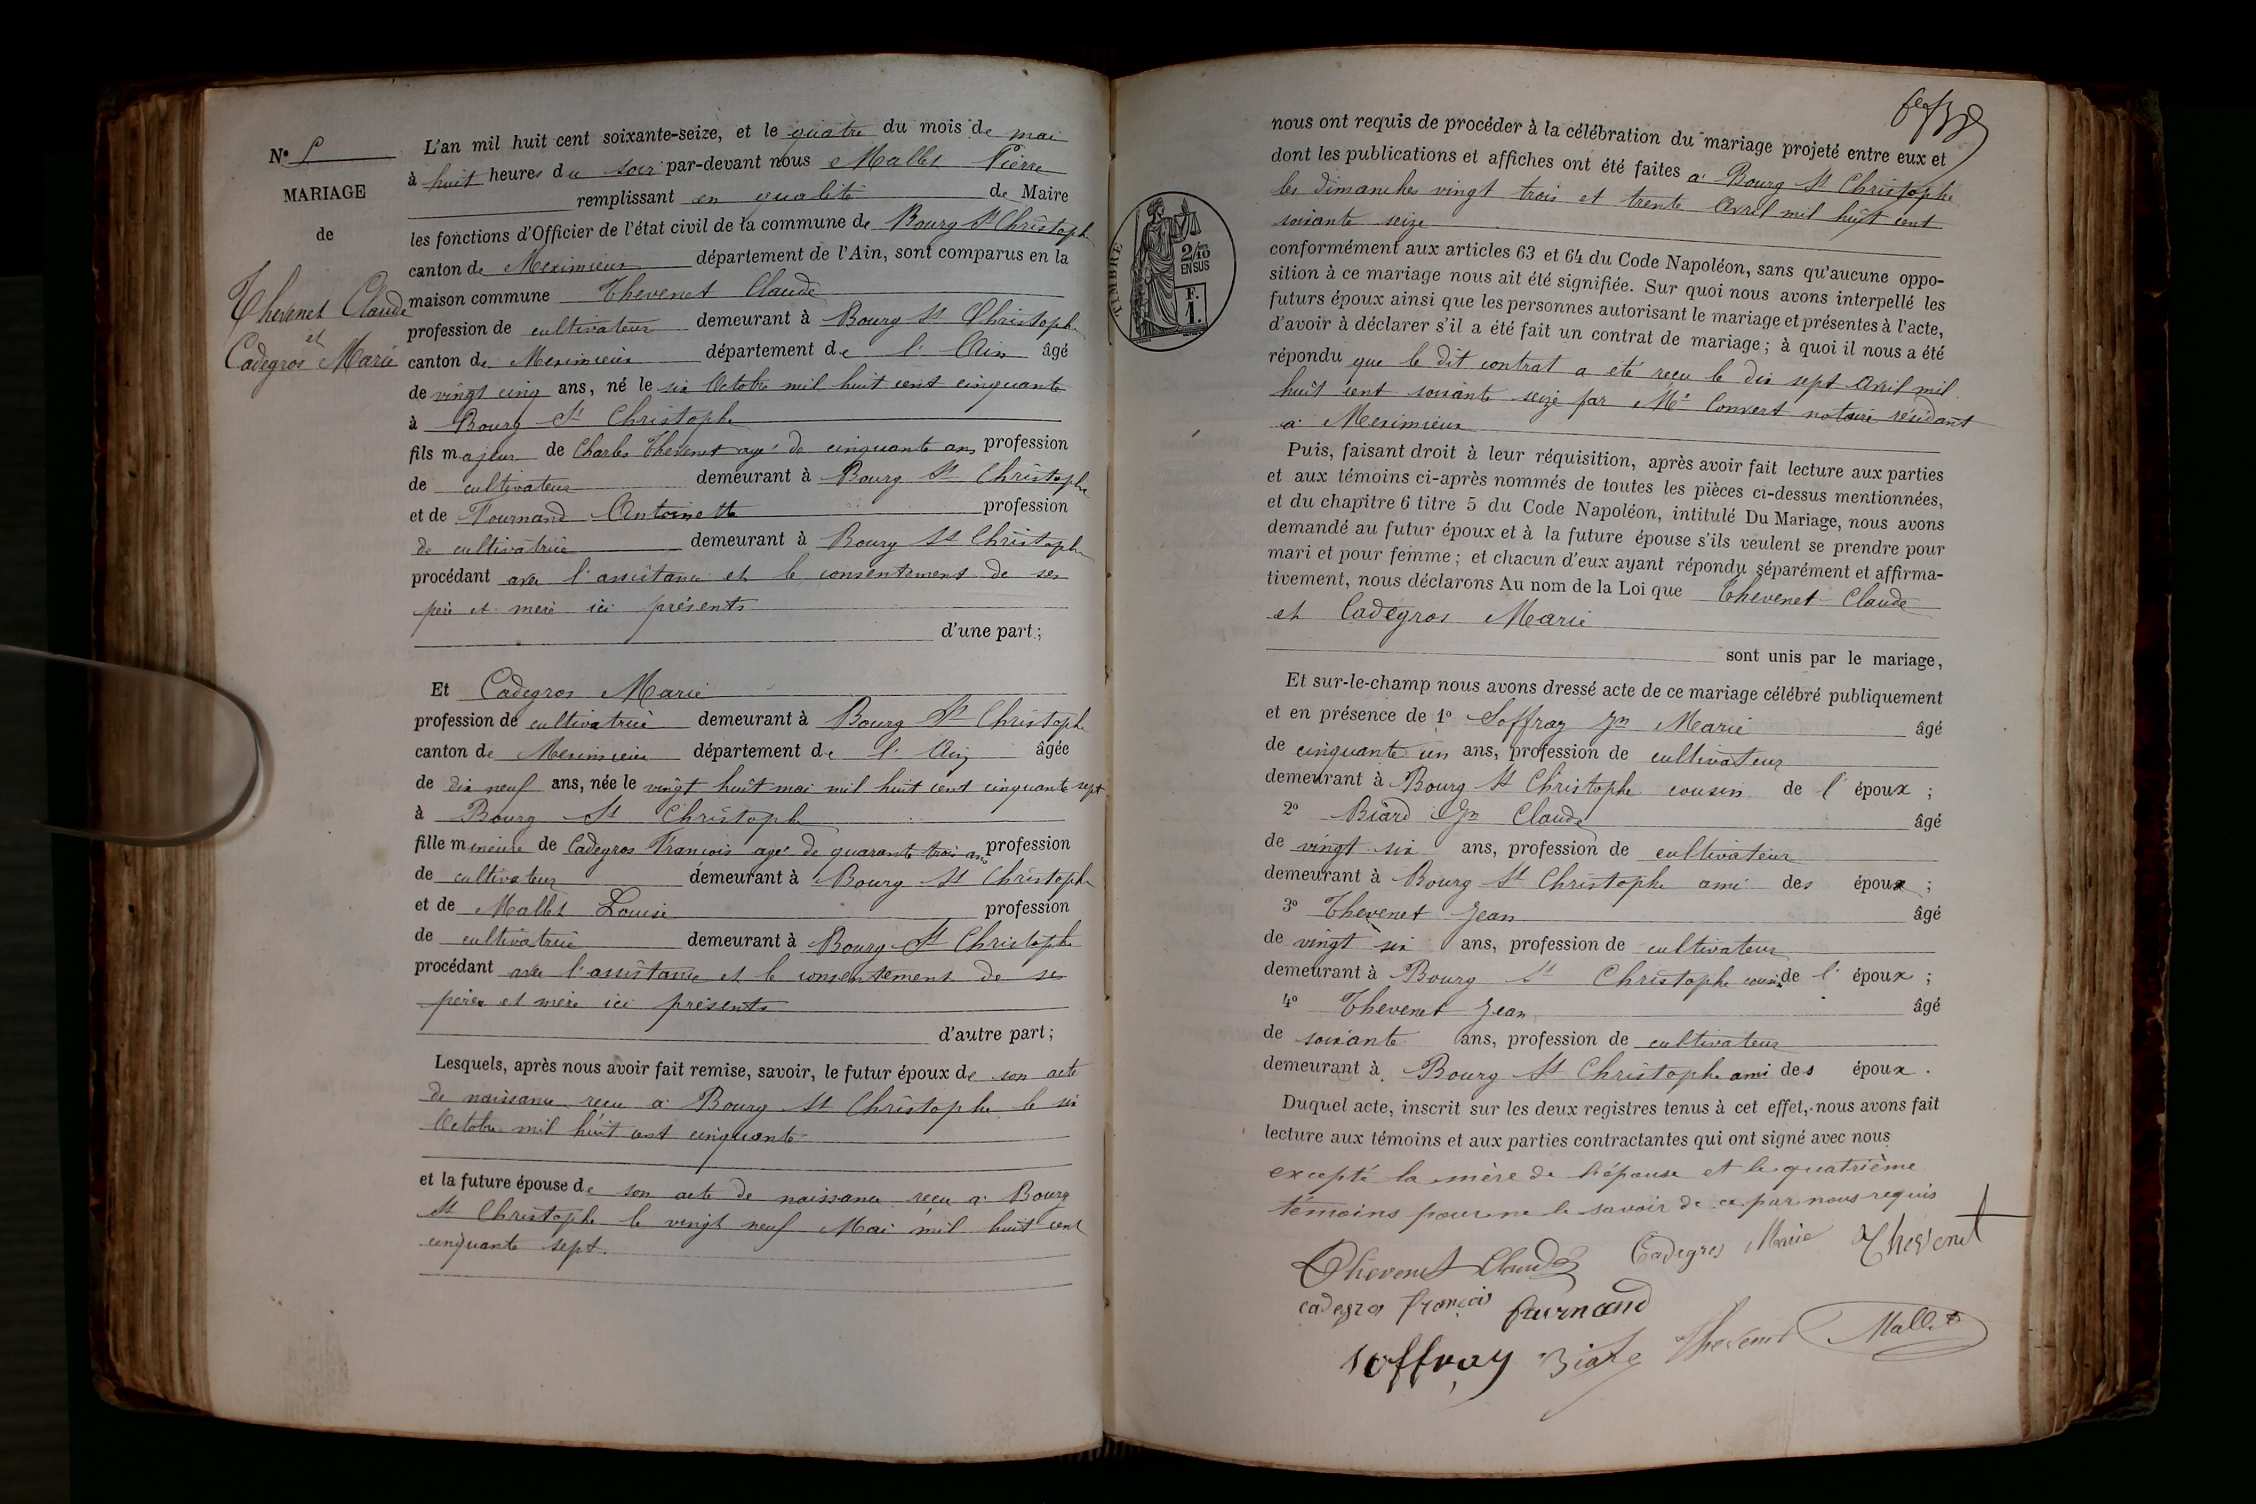 N°
MARIAGE
de
Thevenet Claude
et
Cadegros Marie
L'an mil huit cent soixante-seize, et le quatre du mois de mai
à huit heures du soir par-devant nous Mallet Pierre
remplissant en qualité de Maire
les fonctions d'Officier de l'état civil de la commune de Bourg St Christophe
canton de Meximieux département de l'Ain, sont comparus en la
maison commune Thevenet Claude
profession de cultivateur demeurant à Bourg St Christophe
canton de Meximieux département de l'Ain âgé
de vingt cinq ans, né le six Octobre mil huit cent cinquante
à Bourg St Christophe
fils majeur de Charles Thevenet agé de cinquante ans profession
de cultivateur demeurant à Bourg St Christophe
et de Fournand Antoinette profession
de cultivatrice demeurant à Bourg St Christophe
procédant avec l'assistance et le consentement de ses
père et mère ici présents
d'une part;
Et Cadegros Marie
profession de cultivatrice demeurant à Bourg St Christophe
canton de Meximieux département de l'Ain âgée
de dix neuf ans, née le vingt huit mai mil huit cent cinquante sept
à Bourg St Christophe
fille mineure de Cadegros François agé de quarante trois ans profession
de cultivateur demeurant à Bourg St Christophe
et de Mallet Louise profession
de cultivatrice demeurant à Bourg St Christophe
procédant avec l'assistance et le consentement de ses
père et mère ici présents
d'autre part;
Lesquels, après nous avoir fait remise, savoir, le futur époux de son acte
de naissance reçu à Bourg St Christophe le six
Octobre mil huit cent cinquante
et la future épouse de son acte de naissance reçu à Bourg
St Christophe le vingt neuf Mai mil huit cent
cinquante sept.
TIMBRE
2/10
EN SUS
F.
1.
nous ont requis de procéder à la célébration du mariage projeté entre eux et
dont les publications et affiches ont été faites à Bourg St Christophe
les dimanches vingt trois et trente Avril mil huit cent
soixante seize
conformément aux articles 63 et 64 du Code Napoléon, sans qu'aucune oppo-
sition à ce mariage nous ait été signifiée. Sur quoi nous avons interpellé les
futurs époux ainsi que les personnes autorisant le mariage et présentes à l'acte,
d'avoir à déclarer s'il a été fait un contrat de mariage; à quoi il nous a été
répondu que le dit contrat a été reçu le dix sept Avril mil
huit cent soixante seize par Me Convert notaire résidant
à Meximieux
Puis, faisant droit à leur réquisition, après avoir fait lecture aux parties
et aux témoins ci-après nommés de toutes les pièces ci-dessus mentionnées,
et du chapitre 6 titre 5 du Code Napoléon, intitulé Du Mariage, nous avons
demandé au futur époux et à la future épouse s'ils veulent se prendre pour
mari et pour femme; et chacun d'eux ayant répondu séparément et affirma-
tivement, nous déclarons Au nom de la Loi que Thevenet Claude
et Cadegros Marie
sont unis par le mariage,
Et sur-le-champ nous avons dressé acte de ce mariage célébré publiquement
et en présence de 1° Soffray Jn Marie âgé
de cinquante un ans, profession de cultivateur
demeurant à Bourg St Christophe cousin de l'époux;
2° Biard Jn Claude âgé
de vingt six ans, profession de cultivateur
demeurant à Bourg St Christophe ami des époux;
3° Thevenet Jean âgé
de vingt six ans, profession de cultivateur
demeurant à Bourg St Christophe cousin de l'époux;
4° Thevenet Jean âgé
de soixante ans, profession de cultivateur
demeurant à Bourg St Christophe ami des époux.
Duquel acte, inscrit sur les deux registres tenus à cet effet, nous avons fait
lecture aux témoins et aux parties contractantes qui ont signé avec nous
excepté la mère de l'épouse et le quatrième
témoins pour ne le savoir de ce par nous requis
Thevenet Claude Cadegros Marie Thevenet
cadegros françois fournand
soffray Biard Thevenet Mallet